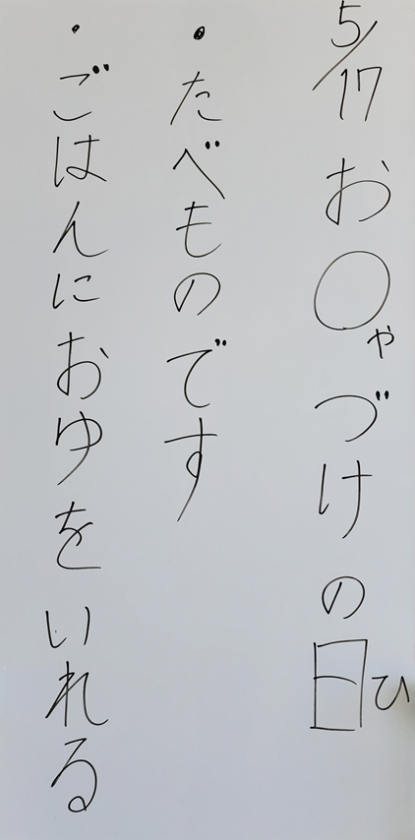 5/17 お〇ゃづけの日ひ
・たべものです
・ごはんにおゆをいれる